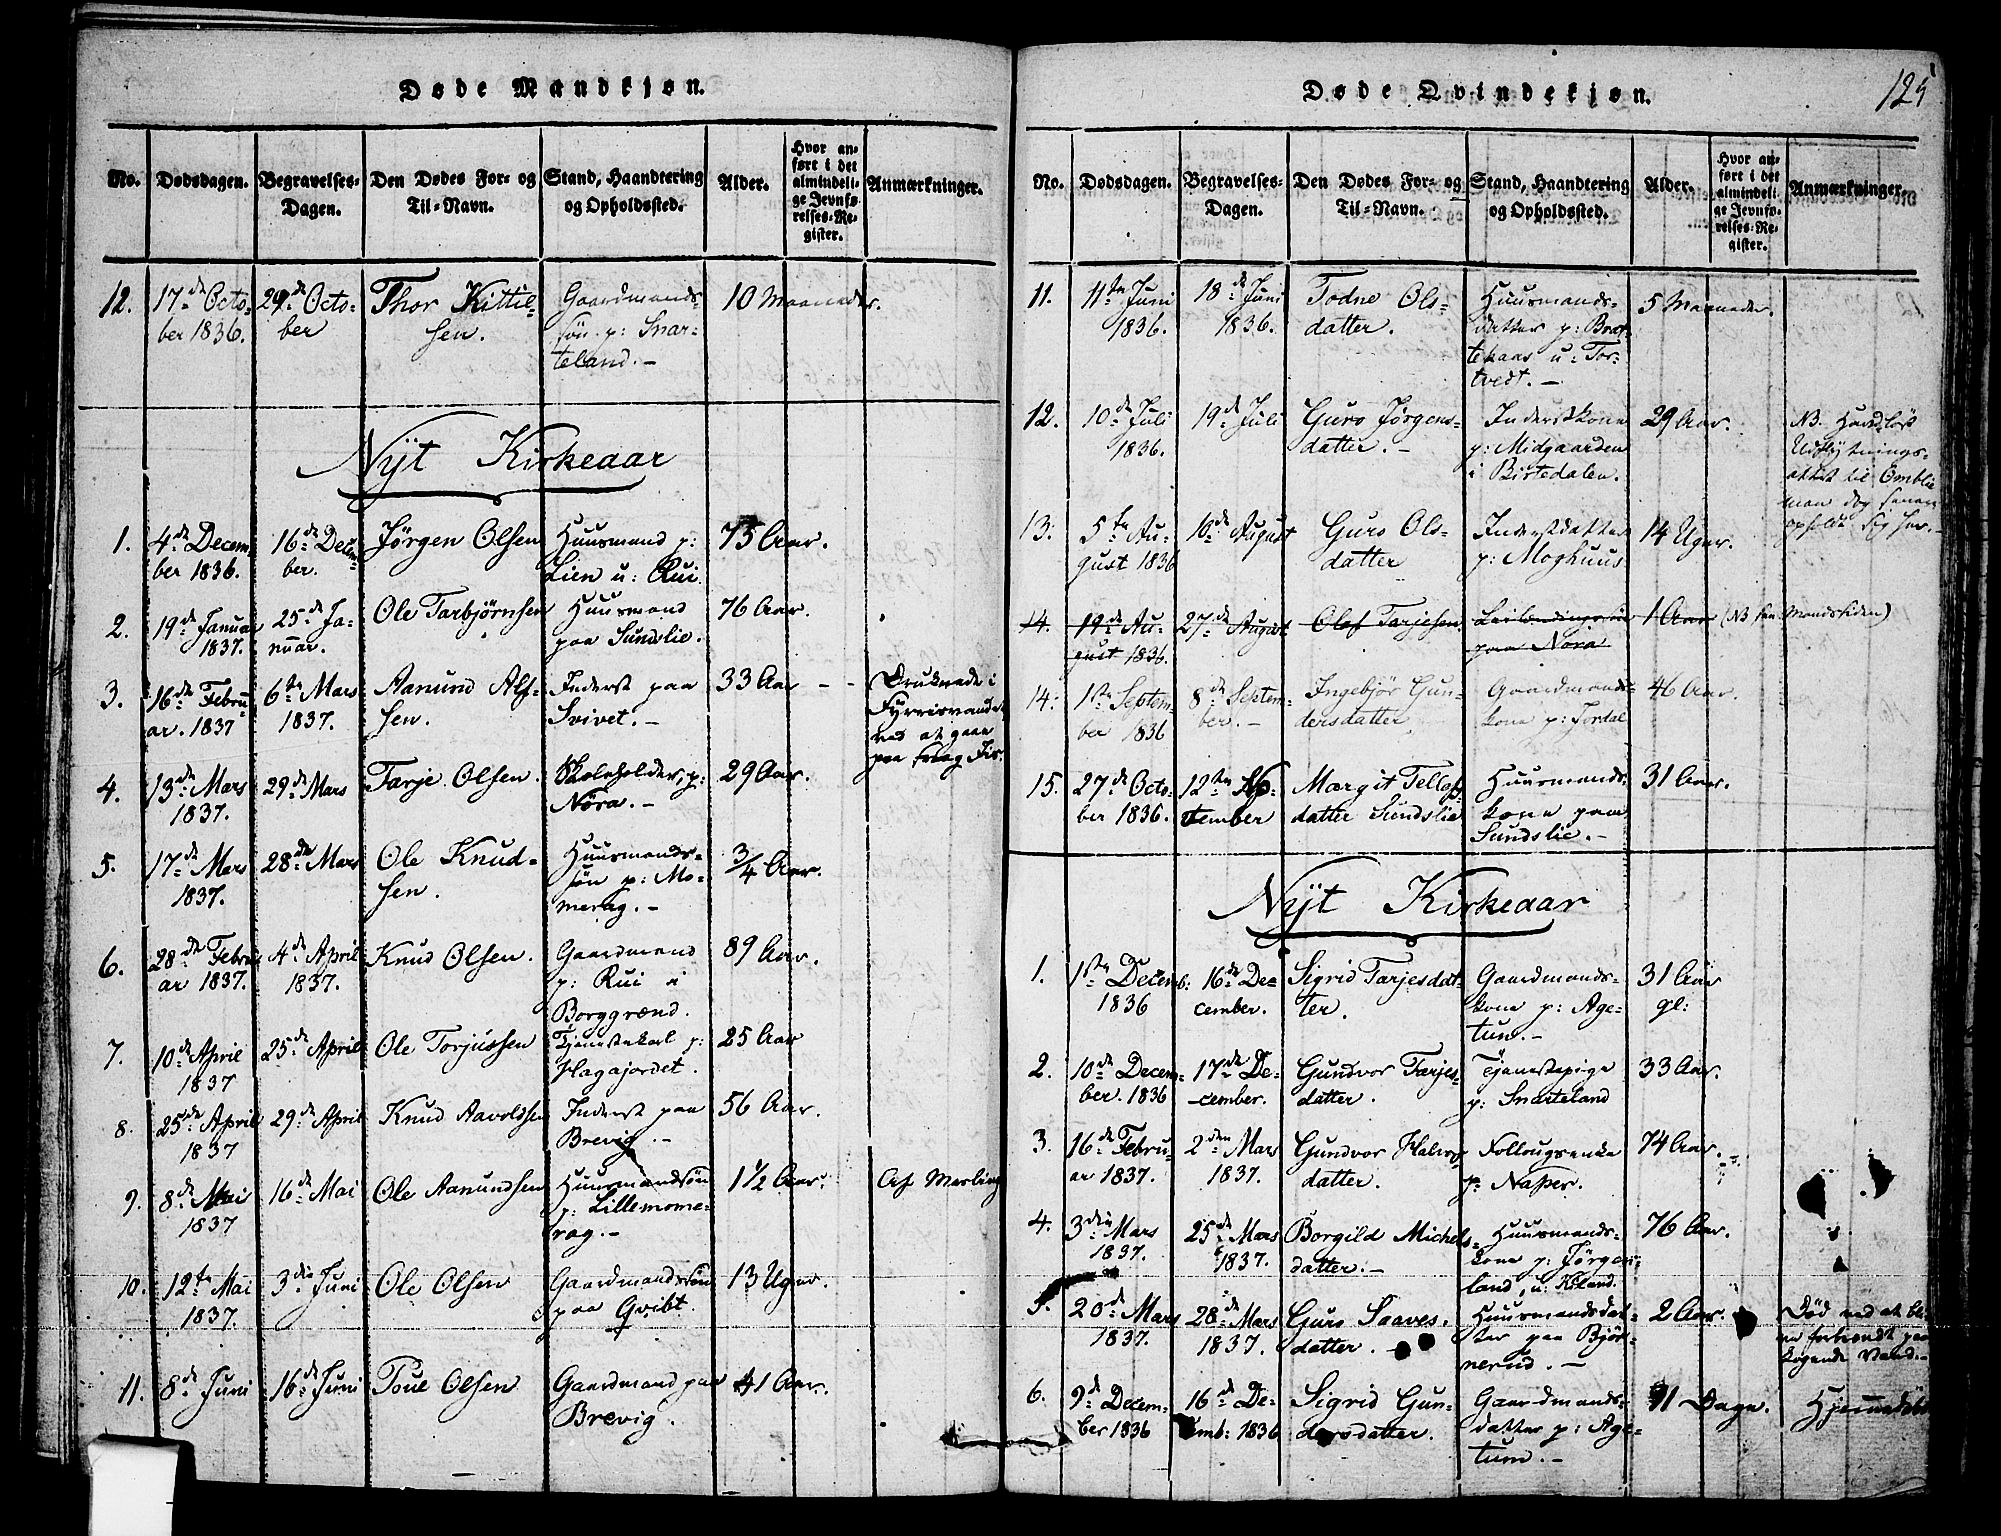 Døde Mandkjøn.
No.
Dødsdagen.
Begravelses-
Dagen.
Den Dødes For- og
Til-Navn.
Stand, Haandtering
og Opholdssted.
Alder.
Hvor an-
ført i det
almindeli-
ge Jevnfø-
relses-Re-
gister.
Anmærkninger.
12. 17de Octo-
ber 1836.
29de Octo-
ber
Thor Kittil-
sen.
Gaardmands-
søn p: Snar-
teland.-
10 Maaneder.
Nyt Kirkeaar
1. 4de Decem-
ber 1836.
16de Decem-
ber.
Jørgen Olsen
Huusmand p:
Lien u: Rui.
75 Aar.
2. 19de Januar
1837.
25de Ja-
nuar.
Ole Tarbjørnsen
Huusmand
paa Sundslie.
76 Aar.
3. 16de Febru-
ar. 1837
6te Mars
1837.
Aanund Alf-
sen.
Inderst paa
Svivet.-
33 Aar
Druknede i
Fyrrisvandet
ved at gaae
paa svag Iis.
4. 13de Mars
1837.
29de Mars
Tarje Olsen.
Skoleholder, p:
Nøra.-
29 Aar.
5. 17de Mars
1837.
28de Mars
Ole Knud-
sen.
Huusmands-
søn p: Mo-
merag.-
3/4 Aar.
6. 28de Febru-
ar 1837.
4de April
1837.
Knud Olsen.
Gaardmand
p: Rui i
Borggrænd.
89 Aar.
7. 10de April
1837
25de April
Ole Torjussen
Tjenestekarl p:
Hagajordet.
25 Aar
8. 25de April
1837
29de April
Knud Aavoldsen
Inderst paa
Brevig.-
56 Aar.
9. 8de Mai
1837
16de Mai
Ole Aanundsen
Huusmandsøn
p: Lillemome-
rag.-
1 1/2 Aar.
Af Mæsling
10. 12te Mai
1837.
3die Juni
Ole Olsen
Gaardmandssøn
paa Qvibt.
13 Uger.
11. 8de Juni
16de Juni
Toue Olsen
Gaardmand paa
Brevig.
41 Aar.
Døde Qvindekjøn.
125
No.
Dødsdagen.
Begravelses-
Dagen.
Den Dødes For- og
Til-Navn.
Stand, Haandtering
og Opholdssted.
Alder.
Hvor an-
ført i det
almindeli-
ge Jevnfø-
relses-Re-
gister.
Anmærkninger.
11. 11te Juni
1836.
18de Juni
1836.
Todne Ols-
datter.
Huusmands-
datter p: Brat-
tekaas u: Tor-
tvedt.-
5 Maaneder.
12. 10de Juli
1836.
19de Juli
Guro Jørgens-
datter.-
Inderstkone
p: Midgaarden
i Birtedalen.
29 Aar.
NB. Havde løst
Udflytnings-
attest til Omblie
men dog senere
opholdt sig her.-
13. 5te Au-
gust 1836
10de August
Guro Ols-
datter
Inderstdatter
p: Moghuus
14 Uger.
14. 19de Au-
gust 1836.
27de August
Olef Tarjesen.
Leilændingssøn
paa Nora
1 Aar (NB see Mandssiden)
14: 1ste Septem-
ber 1836
8de Septem-
ber.-
Ingebjør Gun-
dersdatter
Gaardmands-
kone p: Jordal
46 Aar.
15. 27de Octo-
ber 1836.
12te No-
vember
Margit Tellefs-
datter Sundslie
Huusmands-
kone paa
Sundslie.-
31 Aar.
Nyt Kirkeaar
1. 1ste Decemb:
1836
16de De-
cember.
Sigrid Tarjesdat-
ter.
Gaardmands-
kone p: Age-
tun.-
31 Aar
gl:
2. 10de Decem-
ber. 1836
17de De-
cember.
Gundvor Tarjes-
datter.
Tjenestepige
p: Snarteland
33 Aar.
3. 16de Febru-
ar 1837.
2den Mars
1837.
Gundvor Halvors-
datter.
Follougsenke
p: Næper.
74 Aar.
4. 3die Mars
1837.
25de Mars
1837.
Borgild Michels-
datter.-
Huusmands-
kone p: Jørgen-
land, u: Kiland.
76 Aar.
5. 20de Mars
1837.
28de Mars
1837.
Guro Saaves-
datter.-
Huusmandsdat-
ter paa Bjør-
nerud.-
2 Aar.
Død ved at bli-
ve forbrændt paa
kogende Vand.-
6. 9de Decem-
ber 1836
16de De-
cemb: 1836
Sigrid Gun-
dersdatter.
Gaardmands-
datter p: Age-
tun.-
11 Dage.
Hjemmedøbt